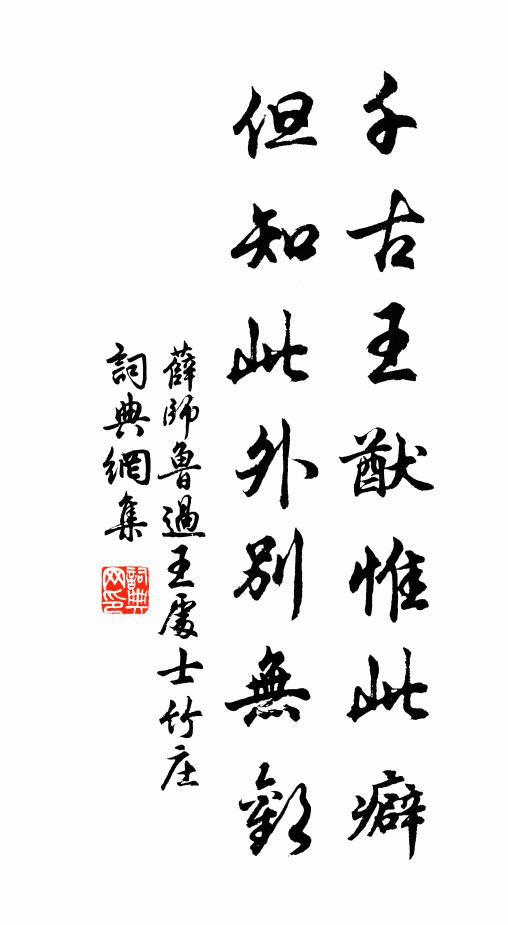 千古王猷惟此癖
但知此外別無歡
薛師魯過王處士竹庄
詞典網集
詞典
网印